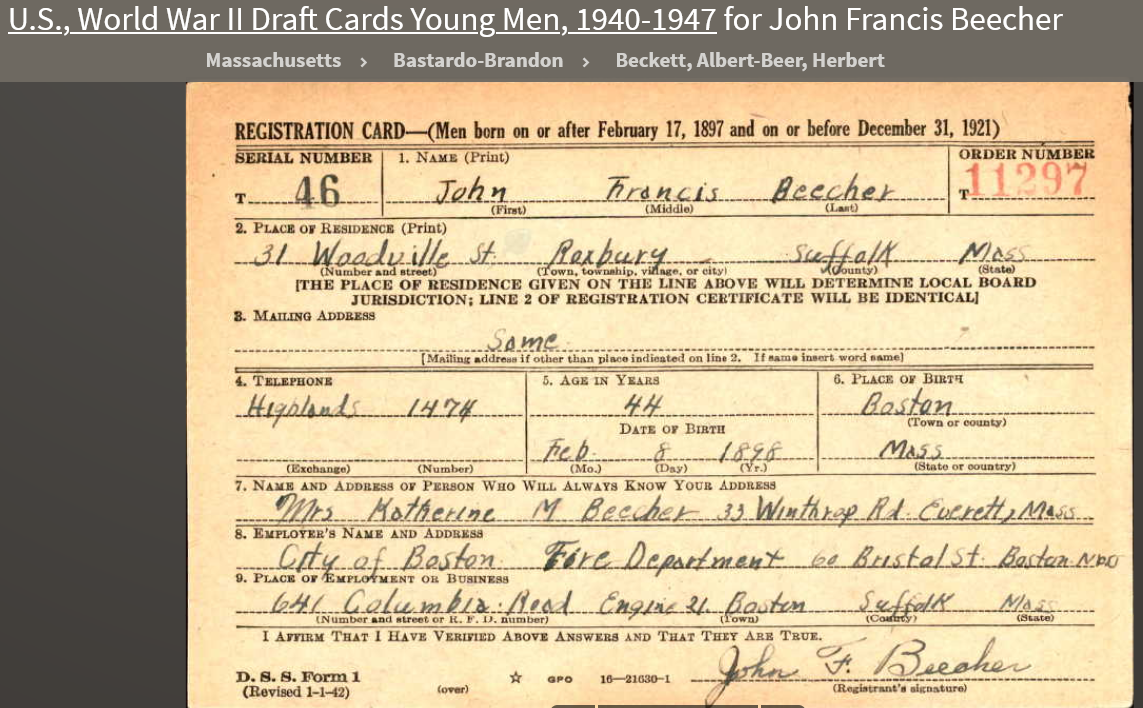 U.S., World War II Draft Cards Young Men, 1940-1947 for John Francis Beecher
Massachusetts › Bastardo-Brandon › Beckett, Albert-Beer, Herbert
REGISTRATION CARD—(Men born on or after February 17, 1897 and on or before December 31, 1921)
SERIAL NUMBER 1. NAME (Print) ORDER NUMBER
T 46 John Francis Beecher T 11297
(First) (Middle) (Last)
2. PLACE OF RESIDENCE (Print)
31 Woodville St. Roxbury Suffolk Mass
(Number and street) (Town, township, village, or city) (County) (State)
[THE PLACE OF RESIDENCE GIVEN ON THE LINE ABOVE WILL DETERMINE LOCAL BOARD
JURISDICTION; LINE 2 OF REGISTRATION CERTIFICATE WILL BE IDENTICAL]
3. MAILING ADDRESS
Same
[Mailing address if other than place indicated on line 2. If same insert word same]
4. TELEPHONE 5. AGE IN YEARS 6. PLACE OF BIRTH
Highlands 1474 44 Boston
(Town or county)
DATE OF BIRTH
Feb. 8 1898 Mass
(Exchange) (Number) (Mo.) (Day) (Yr.) (State or country)
7. NAME AND ADDRESS OF PERSON WHO WILL ALWAYS KNOW YOUR ADDRESS
Mrs Katherine M Beecher 33 Winthrop Rd. Everett, Mass
8. EMPLOYER'S NAME AND ADDRESS
City of Boston Fire Department 60 Bristol St. Boston
9. PLACE OF EMPLOYMENT OR BUSINESS
641 Columbia Road Engine 21. Boston Suffolk Mass
(Number and street or R. F. D. number) (Town) (County) (State)
I AFFIRM THAT I HAVE VERIFIED ABOVE ANSWERS AND THAT THEY ARE TRUE.
John F. Beecher
D. S. S. Form 1
(Revised 1-1-42) (over) ☆ GPO 16—21630-1 (Registrant's signature)